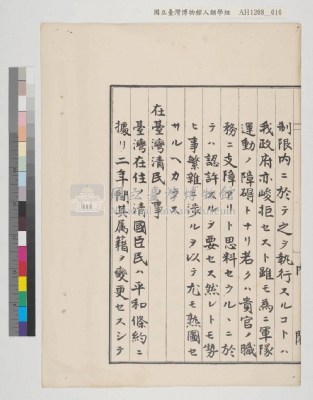 國立臺灣博物館人類學組 AH1208_010
制限内ニ於テ之ヲ執行スルコトハ
我政府亦峻拒セスト雖モ為ニ軍隊
運動ノ障碍トナリ若クハ貴官ノ職
務ニ支障アリト思料セラルヽニ於
テハ認許スルヲ要セス然レトモ勢
ヒ事繁雑ニ渉ルヲ以テ尤モ熟圖セ
サルヘカラス
在臺灣清民ノ事
臺灣在住ノ清國臣民ハ平和條約ニ
據リ二年間其属籍ヲ変更セスシテ